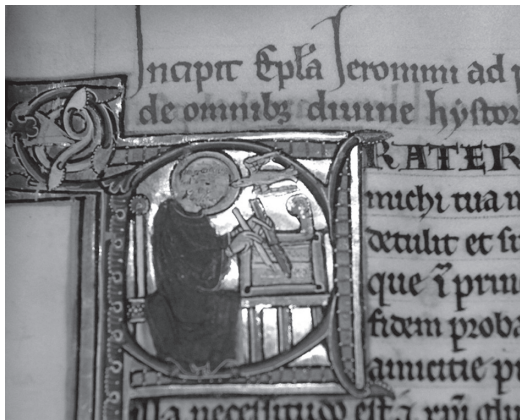 Incipit Epl̄a Jeronimi ad p
de omnibꝫ diuine hystor
RATER
michi tua
detulit et su
que ī prin
fidem proba
amicitie p
necessitudo est.